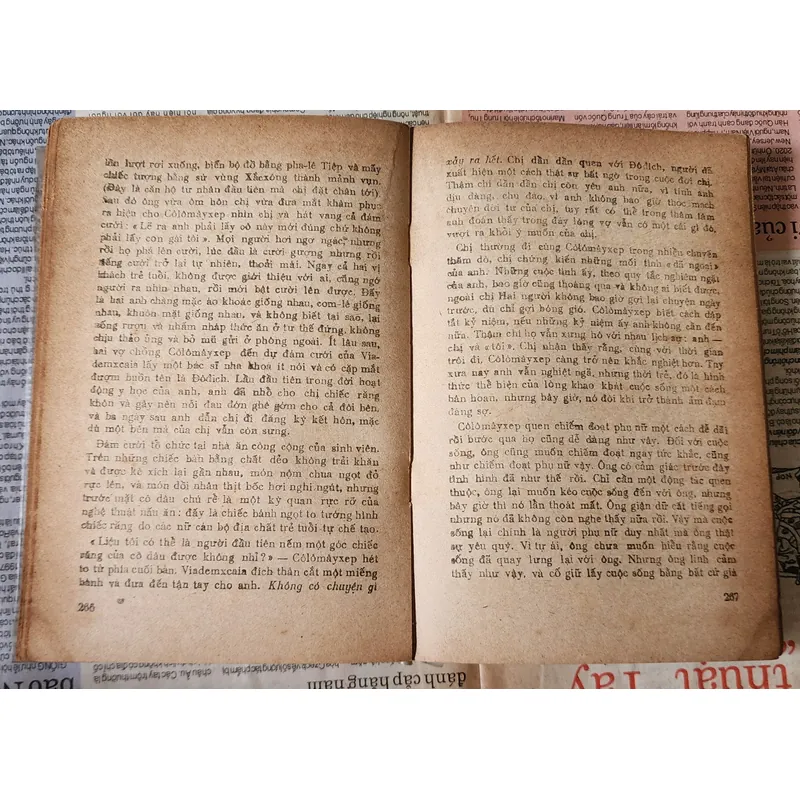 lần lượt rơi xuống, biến bộ đồ bằng pha-lê Tiệp và mấy
chiếc tượng bằng sứ vùng Xắcxông thành mảnh vụn.
(Đây là căn hộ tư nhân đầu tiên mà chị đặt chân tới)
Sau đó ông vừa ôm hôn chị vừa đưa mắt khâm phục
ra hiệu cho Côlômâyxep nhìn chị và hát vang cả đám
cưới: « Lẽ ra anh phải lấy cô này mới đúng chứ không
phải lấy con gái tôi ». Mọi người hơi ngơ ngác, nhưng
rồi họ phá lên cười, lúc đầu là cười gượng nhưng rồi
tiếng cười trở lại tự nhiên, thoải mái. Ngay cả hai vị
khách trẻ tuổi, không được giới thiệu với ai, cũng ngớ
người ra nhìn nhau, rồi mới bật cười lên được. Đấy
là hai anh chàng mặc áo khoác giống nhau, com-lê giống
nhau, khuôn mặt giống nhau, và không biết tại sao, lại
uống rượu và nhấm nháp thức ăn ở tư thế đứng, không
chịu tháo ủng và bỏ mũ gửi ở phòng ngoài. Ít lâu sau,
hai vợ chồng Côlômâyxep đến dự đám cưới của Via-
demxcaia lấy một bác sĩ nha khoa ít nói và có cặp mắt
đượm buồn tên là Đôđich. Lần đầu tiên trong đời hoạt
động y học của anh, anh đã nhổ cho chị chiếc răng
khôn và gây nên nỗi đau đớn ghê gớm cho cả đôi bên,
và ba ngày sau anh dẫn chị đi đăng ký kết hôn, mặc
dù một bên má của chị vẫn còn sưng.
Đám cưới tổ chức tại nhà ăn công cộng của sinh viên.
Trên những chiếc bàn bằng chất dẻo không trải khăn
và được kê xích lại gần nhau, món nộm chua ngọt đỏ
rực lên, và món dồi nhân thịt bốc hơi nghi ngút, nhưng
trước mặt cô dâu chú rể là một kỳ quan rực rỡ của
nghệ thuật nấu ăn: đấy là chiếc bánh ngọt to tướng hình
chiếc răng do các nữ cán bộ địa chất trẻ tuổi tự chế tạo.
« Liệu tôi có thể là người đầu tiên nếm một góc chiếc
răng của cô dâu được không nhỉ? » — Côlômâyxep hét
to từ phía cuối bàn. Viademxcaia đích thân cắt một miếng
bánh và đưa đến tận tay cho anh. Không có chuyện gì
266
xảy ra hết. Chị dần dần quen với Đôđich, người đã
xuất hiện một cách thật sự bất ngờ trong cuộc đời chị.
Thậm chí dần dần chị còn yêu anh nữa, vì tính anh
dịu dàng, chu đáo, vì anh không bao giờ thóc mách
chuyện đời tư của chị, tuy rất có thể trong thâm tâm
anh đoán thấy trong đáy lòng vợ vẫn có một cái gì đó,
vượt ra khỏi ý muốn của chị.
Chị thường đi cùng Côlômâyxep trong nhiều chuyến
thăm dò, chị chứng kiến những mối tình « dã ngoại »
của anh. Những cuộc tình ấy, theo quy tắc nghiêm ngặt
của anh, bao giờ cũng thoáng qua và không ai biết được,
ngoài chị. Hai người không bao giờ gợi lại chuyện ngày
trước, dù chỉ gợi bóng gió. Côlômâyxep biết cách dập
tắt kỷ niệm, nếu những kỷ niệm ấy anh không cần đến
nữa. Thậm chí họ vẫn xưng hô với nhau lịch sự: anh —
chị và « tôi ». Chị nhận thấy rằng, cùng với thời gian
trôi đi, Côlômâyxep càng trở nên khắc nghiệt hơn. Tay
xưa nay anh vẫn nghiệt ngã, nhưng thời trẻ, đó là hình
thức thể hiện của lòng khao khát cuộc sống một cách
hân hoan, nhưng bây giờ, nó đôi khi trở thành ảm đạm
đáng sợ.
Côlômâyxep quen chiếm đoạt phụ nữ một cách dễ dãi
rồi bước qua họ cũng dễ dàng như vậy. Đối với cuộc
sống, ông cũng muốn chiếm đoạt ngay tức khắc, cũng
như chiếm đoạt phụ nữ vậy. Ông có cảm giác trước đây
tình hình đã như thế rồi. Chỉ cần một động tác quen
thuộc, ông lại muốn kéo cuộc sống đến với ông, nhưng
bây giờ thì nó lẩn thoát mất. Ông giận dữ cất tiếng gọi
nhưng nó đã không còn nghe thấy nữa rồi. Vậy mà cuộc
sống lại chính là người phụ nữ duy nhất mà ông thật
sự yêu quý. Vì tự ái, ông chưa muốn hiểu rằng cuộc
sống đã quay lưng lại với ông. Nhưng ông linh cảm
thấy như vậy, và cố giữ lấy cuộc sống bằng bất cứ giá
267
đánh cắp hàng năm
thuật Tây